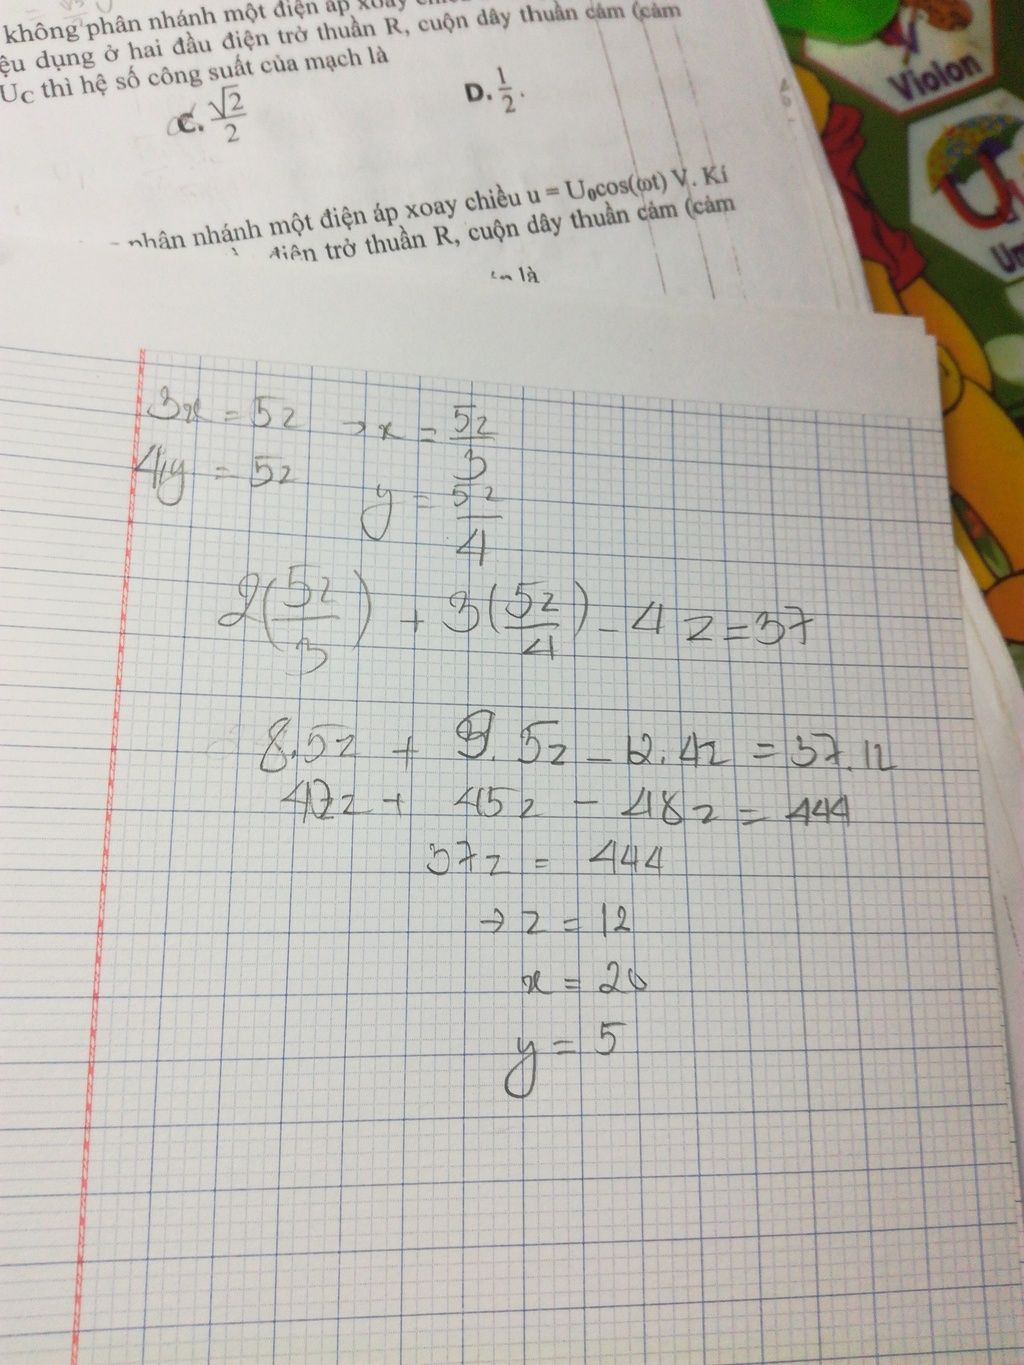 không phân nhánh một điện áp xoay
ệu dụng ở hai đầu điện trở thuần R, cuộn dây thuần cảm (cảm
U_C thì hệ số công suất của mạch là
C. √2/2
D. 1/2.
phân nhánh một điện áp xoay chiều u = U₀cos(ωt) V. Kí
điện trở thuần R, cuộn dây thuần cảm (cảm
là
Violon
U
3x = 5z → x = 5z/3
4y = 5z y = 5z/4
2(5z/3) + 3(5z/4) - 4z = 37
8.5z + 9.5z - 12.4z = 37.12
40z + 45z - 48z = 444
37z = 444
→ z = 12
x = 20
y = 5